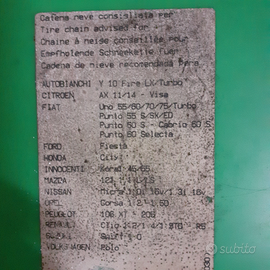 Catena neve consigliata per
Tire chain advised for
Chaine à neige conseillée pour
Empfohlene Schneekette fuer
Cadena de nieve recomendada para
AUTOBIANCHI Y 10 Fire LX/Turbo
CITROEN AX 11/14 - Visa
FIAT Uno 55/60/70/75/Turbo
Punto 55 S/SX/ED
Punto 60 S - Cabrio 60 S
Punto 60 Selecta
FORD Fiesta
HONDA Civic
INNOCENTI 45/65
MAZDA 121
NISSAN Micra 16v/1.3i 16v
OPEL Corsa
PEUGEOT 106 XT - 205
RENAULT Clio
Swift
VOLKSWAGEN Polo
subito